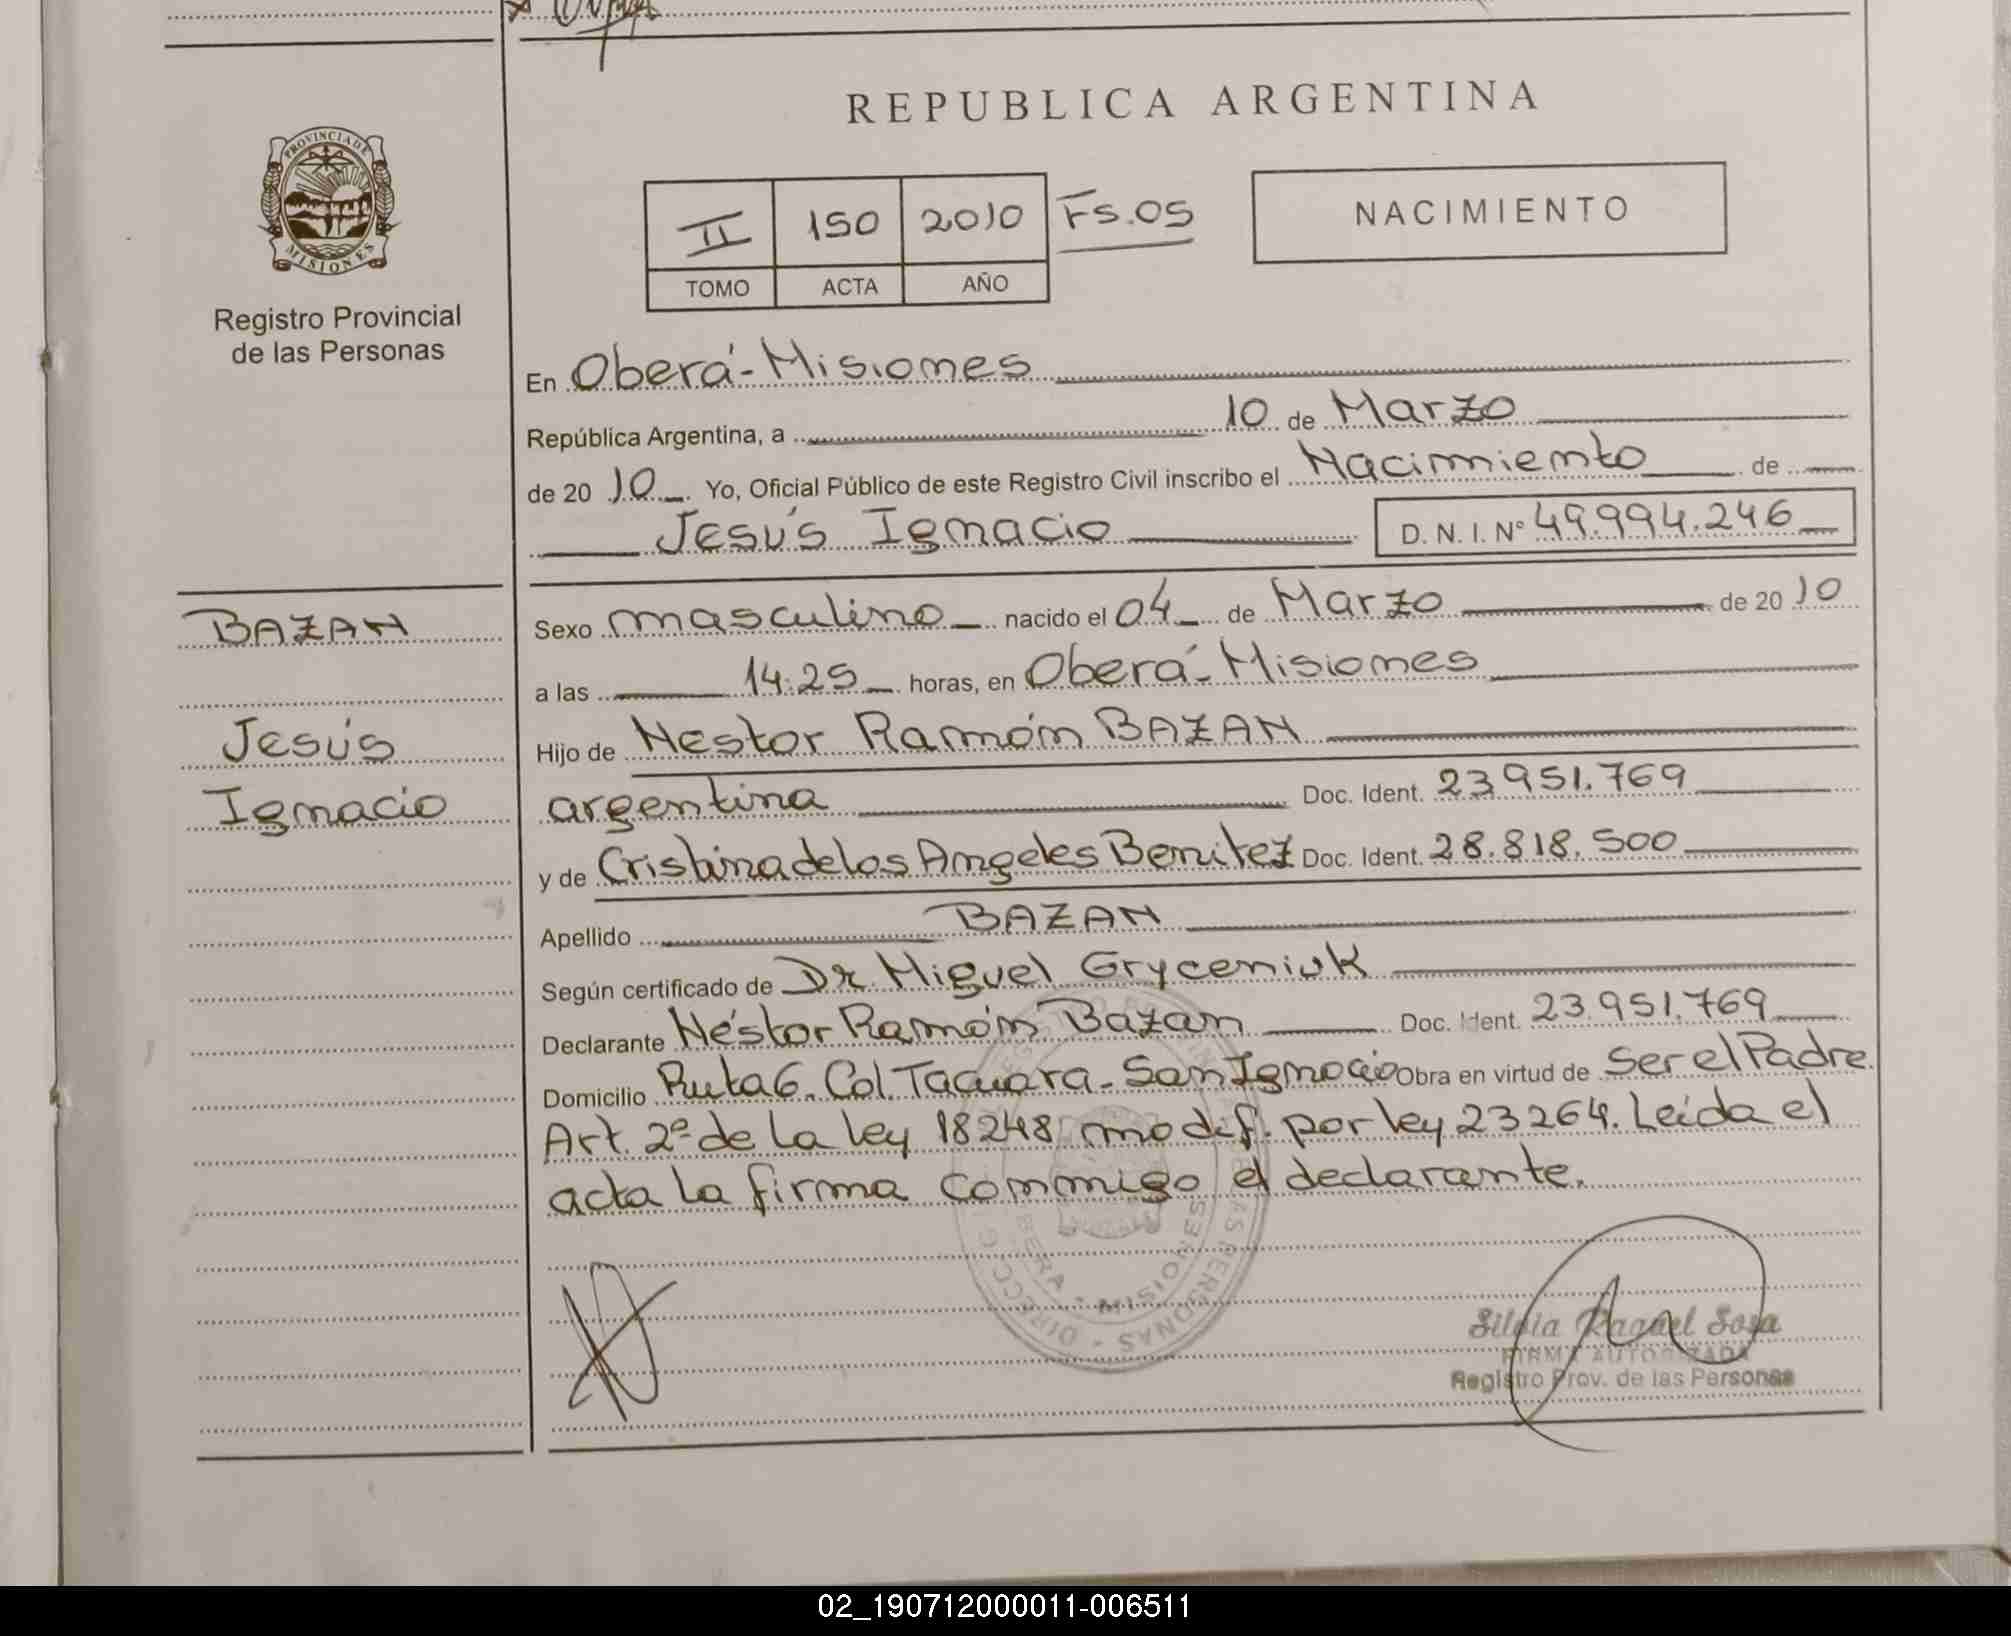 REPUBLICA ARGENTINA
PROVINCIA DE
MISIONES
Registro Provincial
de las Personas
II 150 2010 Fs.05
TOMO ACTA AÑO
NACIMIENTO
En Oberá-Misiones
República Argentina, a 10 de Marzo
de 20 10 . Yo, Oficial Público de este Registro Civil inscribo el Nacimiento de
Jesús Ignacio D. N. I. Nº 49.994.246
BAZAN
Jesús
Ignacio
Sexo masculino nacido el 04 de Marzo de 20 10
a las 14:25 horas, en Oberá-Misiones
Hijo de Nestor Ramón BAZAN
argentina Doc. Ident. 23.951.769
y de Cristina de los Angeles Benitez Doc. Ident. 28.818.500
Apellido BAZAN
Según certificado de Dr. Miguel Gryceniuk
Declarante Néstor Ramón Bazan Doc. Ident. 23.951.769
Domicilio Ruta 6. Col. Tacuara - San Ignacio Obra en virtud de Ser el Padre.
Art. 2º de la ley 18248 modif. por ley 23264. Leida el
acta la firma conmigo el declarante.
OBERA - MISIONES
Silvia Raquel Sosa
FIRMA AUTORIZADA
Registro Prov. de las Personas
02_190712000011-006511